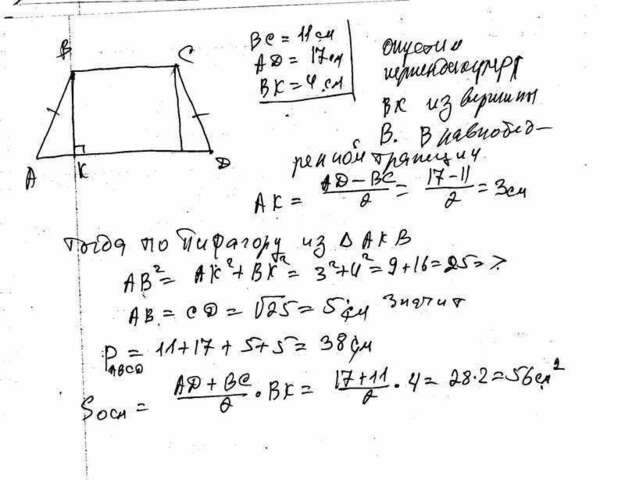 B C
A K D
BC = 11 см
AD = 17 см
BK = 4 см
опустим
перпендикуляр
BK из вершины
B. В равнобед-
ренной трапеции
AK = (AD - BC)/2 = (17 - 11)/2 = 3 см
Тогда по Пифагору из △ AKB
AB² = AK² + BK² = 3² + 4² = 9 + 16 = 25 =>
AB = CD = √25 = 5 см Значит
P ABCD = 11 + 17 + 5 + 5 = 38 см
Sосн = (AD + BC)/2 · BK = (17 + 11)/2 · 4 = 28 · 2 = 56 см²